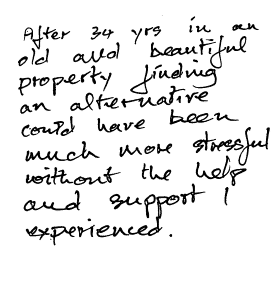 After 34 yrs in an
old and beautiful
property finding
an alternative
could have been
much more stressful
without the help
and support I
experienced.